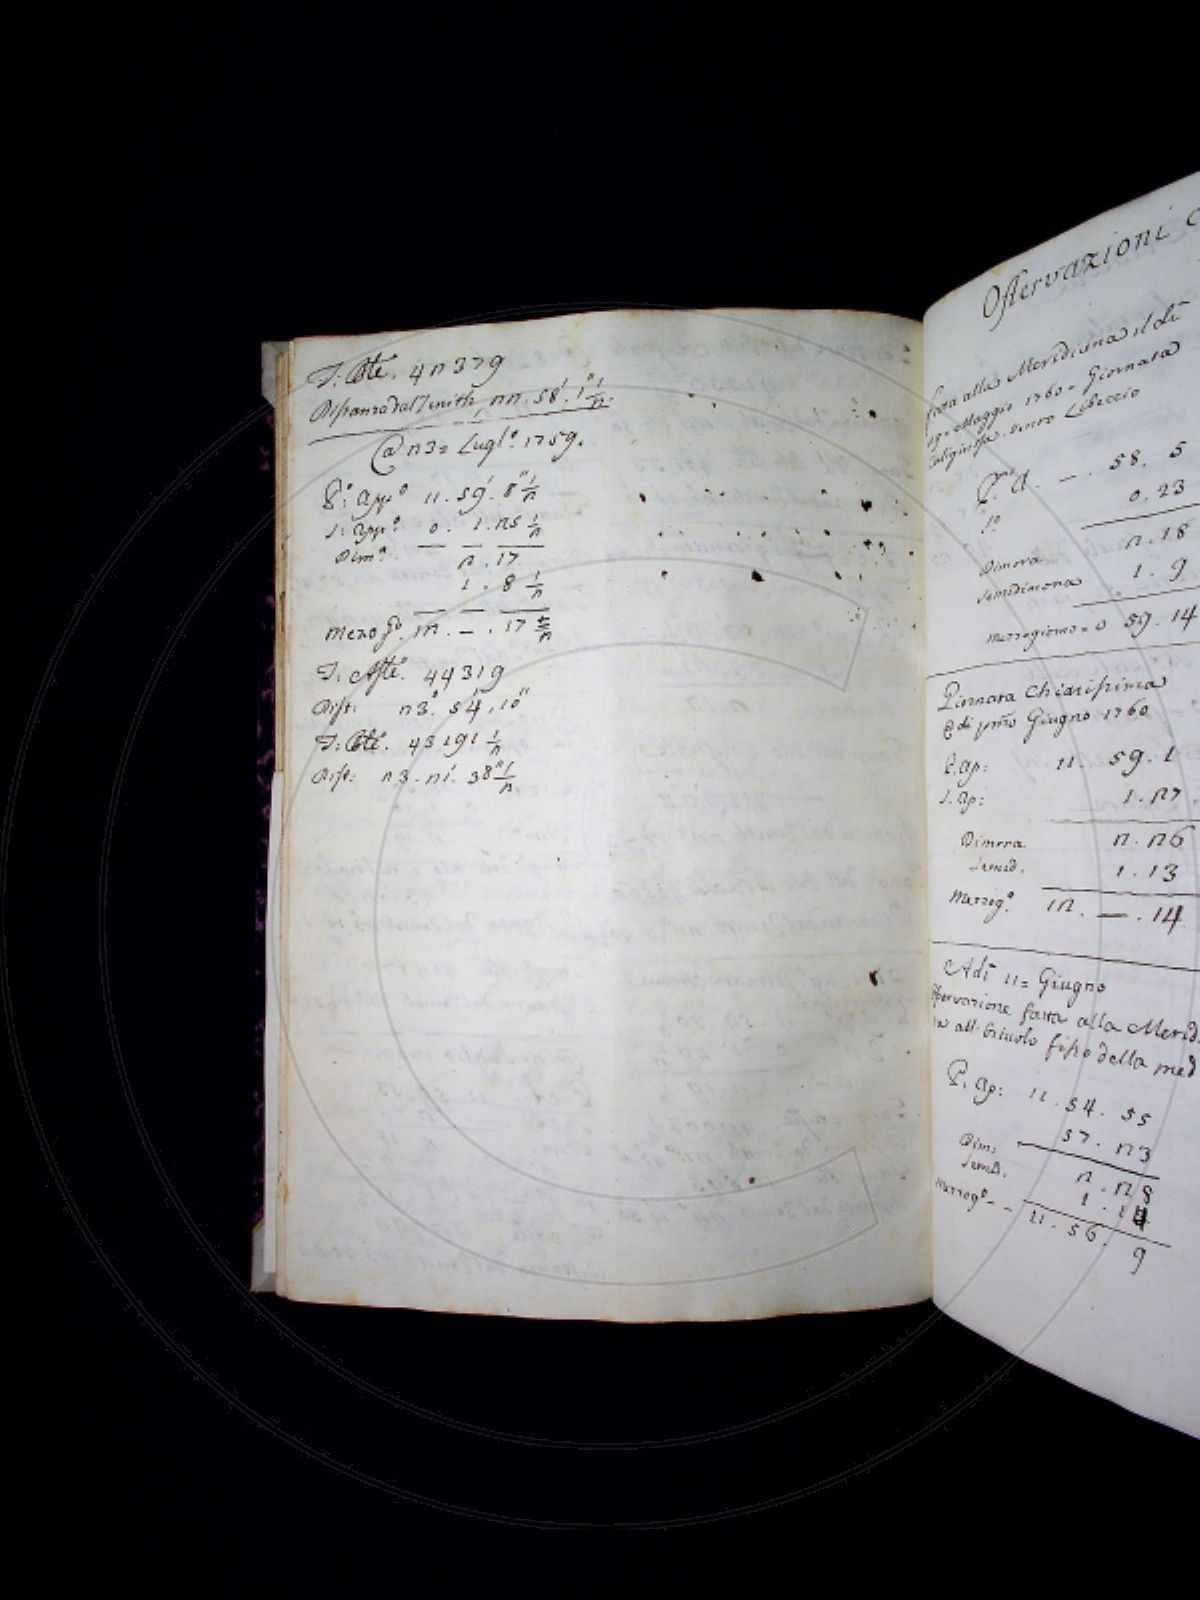 T. Bte. 42379
Distanza dal Zenith 22. 58'. 1" 1/2.
@ 23 = Lugl.o 1759.
P.o: app.o 11. 59'. 8" 1/2
S: app.o 0. 1. 25 1/2
Dim.a 2. 17
1. 8 1/2
mezo g.o. 12. — . 17
T. Aste. 44319
Dist: 23.° 54'. 10"
T: Bte. 43191 1/2
Dist: 23. 21'. 38" 1/2
Osservazioni
fatta alla Meridiana il dì
Maggio 1760 = Giornata
caliginosa. vento Libeccio
58. 5
0. 23
Dimora 2. 18
semidimora 1. 9
mezzogiorno = 0 59. 14
Giornata chiarissima
@ di pmo Giugno 1760
P. ap: 11 59. 1
S. ap: 1. 27
Dimora 2. 26
semid. 1. 13
mezzog.o 12. — . 14
Adì 11 = Giugno
fatta alla Merid
all. fisso della med
P. ap: 11. 54. 55
57. 23
Dim: 2. 28
semid. 1. 14
mezzog.o - - 11. 56. 9